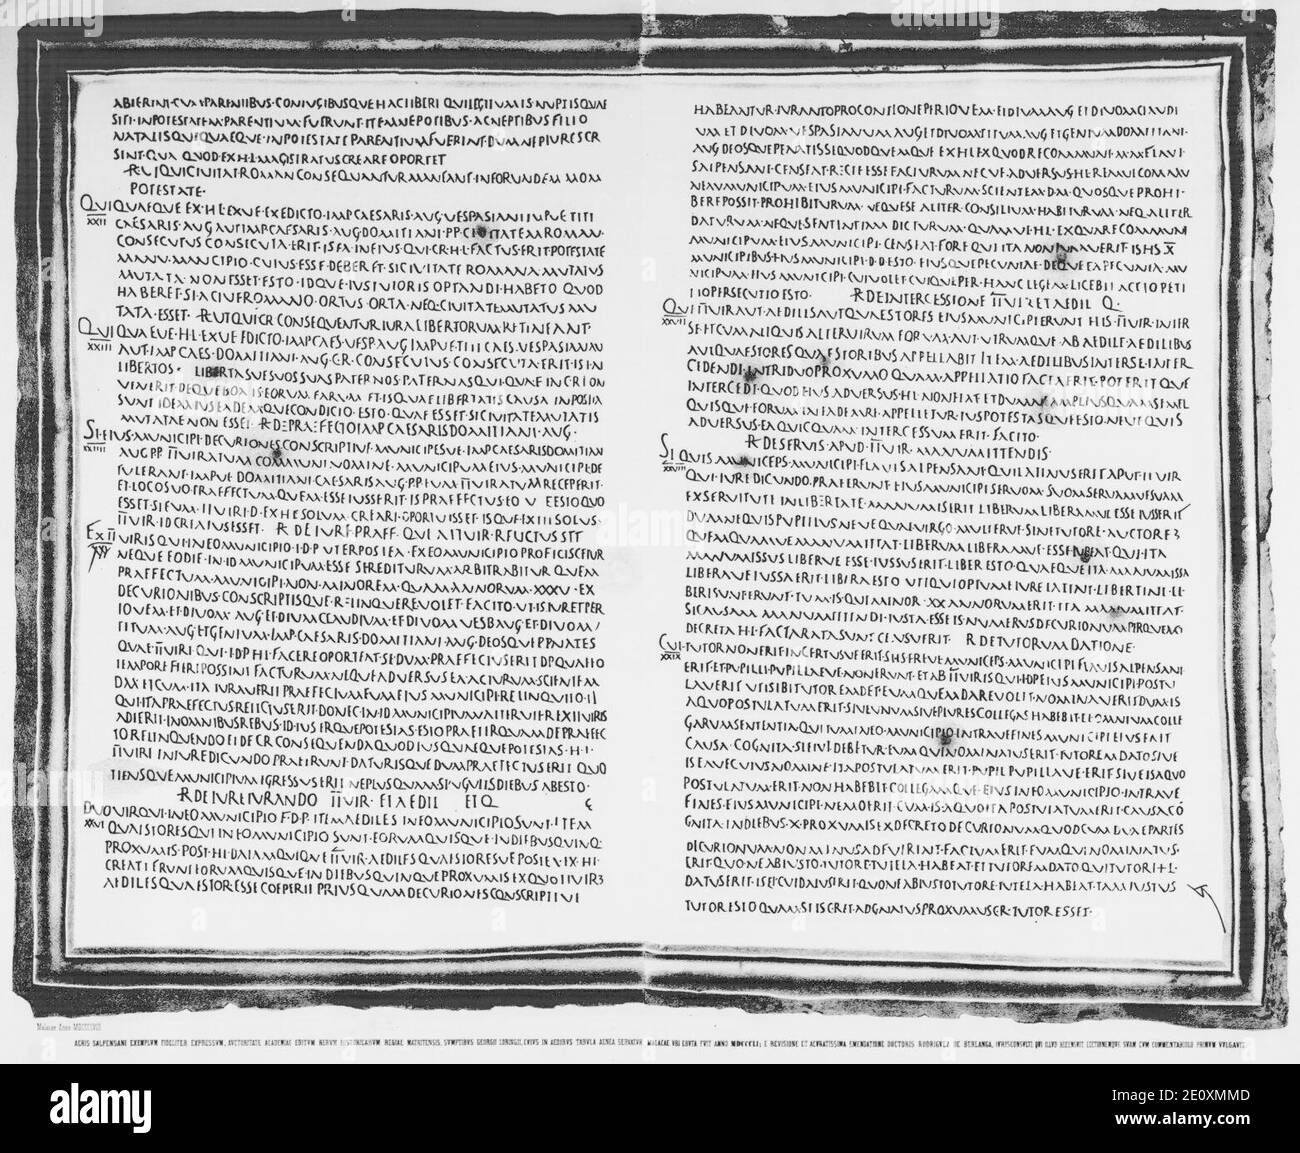 ABIERINT·CVM PARENTIBVS·CONIVGIBVSQVE HAC LIBERI QVI LEGITVMIS NVPTIS QVAE
SITI·IN POTESTATEM PARENTIVM FVERVNT·ITEM NEPOTIBVS·AC NEPTIBVS FILIO
NATALIS QVE QVAEQVE·IN POTESTATE PARENTIVM FVERINT·DVM NE PLVRES C R
SINT·QVA QVOD EX H·L·MAGISTRATVS CREARE OPORTET
R VT QVI CIVITAT·ROMAN·CONSEQVANTVR MANEANT·IN EORVNDEM MOM
POTESTATE·
QVI QVAEQVE EX·H L EXVE·EX EDICTO·IMP CAESARIS·AVG·VESPASIANI IMPVE TITI
XXII
CAESARIS·AVG AVT IMP CAESARIS·AVG·DOMITIANI·P P·CIVITATEM ROMAN·
CONSECVTVS CONSECVTA·ERIT·IS EA IN EIVS·QVI·C R H L FACTVS·ERIT·POTESTATE
MANV·MANCIPIO·CVIVS·ESSE·DEBERET·SI CIVITATE ROMANA MVTATVS
MVTATA·NON ESSET·ESTO·IDQVE IVS TVTORIS OPTANDI·HABETO QVOD
HABERET·SI A CIVE ROMANO·ORTVS ORTA·NEQ CIVITATE MVTATVS MV
TATA·ESSET·R VT QVI C R CONSEQVENTVR IVRA LIBERTORVM RETINEANT·
QVI QVAEVE·H L·EXVE EDICTO·IMP CAES·VESP AVG IMPVE TITI CAES·VESPASIAN AV
XXIII
AVT·IMP CAES·DOMITIANI·AVG·C R·CONSECVTVS·CONSECVTA ERIT·IS·IN
LIBERTOS·LIBERTASVE SVOS SVAS PATERNOS·PATERNAS QVI·QVAE IN C R NON
VENERIT·DEQVE BONIS EORVM EARVM ET IS QVAE LIBERTATIS CAVSA INPOSITA
SVNT·IDEM IVS EADEMQVE CONDICIO·ESTO·QVAE ESSET·SI CIVITATE MVTATIS
MVTATAE NON ESSET·R DE PRAEFECTO IMP CAESARIS DOMITIANI·AVG·
SI·EIVS·MVNICIPI·DECVRIONES CONSCRIPTIVE·MVNICIPESVE·IMP CAESARIS DOMITIAN
XXIIII
AVG P P·II VIRATVM COMMVNI·NOMINE·MVNICIPVM EIVS·MVNICIPI·DE
TVLERINT·IMPVE·DOMITIANI·CAESARIS AVG·P P·EVM II VIRATVM RECEPERIT·
ET·LOCO SVO PRAEFECTVM QVEM·ESSE IVSSERIT·IS PRAEFECTVS·EO V EESIO QVO
ESSET·SI EVM·II VIR I·D·EX H L SOLVM·CREARI·OPORTVISSET·ISQVE·EX H L SOLVS·
II VIR·I D·CREATVS ESSET·R DE IVRE PRAEF·QVI·A II VIR·RELICTVS SIT
EX II VIRIS QVI IN EO MVNICIPIO·I·D·P VTER POSTEA·EX EO MVNICIPIO PROFICISCETVR
XXV
NEQVE EO DIE·IN ID MVNICIPIVM ESSE SE REDITVRVM ARBITRABITVR QVEM
PRAEFECTVM·MVNICIPI NON·MINOREM·QVAM ANNORVM·XXXV·EX
DECVRIONIBVS·CONSCRIPTISQVE·RELINQVERE VOLET·FACITO·VT·IS IVRET PER
IOVEM·ET DIVOM·AVG ET DIVM CLAVDIVM·ET DIVOM·VESB AVG·ET DIVOM
TITVM·AVG ET GENIVM·IMP·CAESARIS·DOMITIANI·AVG·DEOSQVE PENATES
QVAE II VIRI QVI·I D P·H L FACERE OPORTEAT·SE DVM·PRAEFECTVS ERIT D P QVAE EO
TEMPORE FIERI POSSINT FACTVRVM·NEQVE ADVERSVS EA ACTVRVM·SCIENTEM
D M·ET CVM·ITA IVRAVERIT PRAEFECTVM EVM EIVS MVNICIPI RELINQVITO·II
QVI ITA PRAEFECTVS RELICTVS ERIT·DONEC·IN ID·MVNICIPIVM ALTERVTER EX II VIRIS
ADIERIT·IN OMNIBVS REBVS·ID IVS·EAQVE POTESTAS·ESTO PRAETERQVAM DE PRAEFEC
TO RELINQVENDO ET DE C R CONSEQVENDA QVOD IVS QVAEQVE POTESTAS·H·L·
II VIRI IN IVRE DICVNDO PRAEERVNT·DATVR IS QVE DVM PRAEFECTVS ERIT QVO
TIENSQVE MVNICIPIVM EGRESSVS ERIT NE PLVS QVAM·SINGVLIS DIEBVS ABESTO·
R DE IVRE IVRANDO II VIR·ET AEDIL ET Q
DVOVIR QVI·IN EO MVNICIPIO I·D·P·ITEM AEDILES IN EO MVNICIPIO SVNT·ITEM
XXVI
QVAESTORES QVI IN EO MVNICIPIO SVNT·EORVM QVISQVE·IN DIEBVS QVINQ·
PROXVMIS·POST·H L DATAM QVIQVE II VIR·AEDILES QVAESTORESVE POSTEA EX·H L·
CREATI ERVNT EORVM QVISQVE·IN DIEBVS QVINQVE PROXVMIS EX QVO II VIR
AEDILES QVAESTOR ESSE COEPERIT PRIVS QVAM DECVRIONES CONSCRIPTIVE
HABEANTVR·IVRANTO PRO CONTIONE PER IOVEM·ET DIVM AVG ET DIVOM CLAVDI
VM·ET DIVOM·VESPASIANVM AVG ET DIVOM TITVM·AVG ET GENIVM DOMITIANI·
AVG DEOSQVE PENATIS SE QVODQVEMQVE EX H L EX QVOD RE COMMVNI·M·M·FLAVI·
SALPENSANI·CENSEAT·RECTE ESSE FACTVRVM NEQVE ADVERSVS·H L REMVE COMMV
NEM MVNICIPVM·EIVS MVNICIPI·FACTVRVM·SCIENTEM D M·QVOSQVE PROHI·
BERE POSSIT·PROHIBITVRVM·NEQVE SE ALITER·CONSILIVM·HABITVRVM·NEQ ALITER
DATVRVM·NEQVE SENTENTIAM DICTVRVM·QVAM VT·H L·EX QVA RE COMMVNI
MVNICIPVM·EIVS MVNICIPI·CENSEAT·FORE QVI ITA NON IVRAVERIT·IS HS X
MVNICIPIBVS EIVS MVNICIPI·D D·ESTO·EIVSQVE PECVNIAE·DEQVE EA PECVNIA·MV
NICIPVM·EIVS MVNICIPI·CVI VOLET·CVIQVE PER·HANC LEGEM·LICEBIT ACTIO PETI
TIO PERSECVTIO ESTO·R DE INTERCESSIONE II VIR ET AEDIL Q·
QVI II VIR AVT·AEDILES AVT QVAESTORES EIVS MVNICIPI ERVNT HIS·II VIR·INTER
XXVII
SE·ET CVM ALIQVIS ALTERVTRVM EORVM·AVT·VTRVMQVE·AB AEDILE·AEDILIBVS
AVT QVAESTORE QVAESTORIBVS APPELLABIT ITEM·AEDILIBVS INTER SE·INTER
CEDENDI·IN TRIDVO PROXVMO QVAM·APPELLATIO FACTA ERIT·POTERIT QVE
INTERCEDI·QVOD EIVS ADVERSVS·H L·NON FIAT·ET DVM NE AMPLIVS QVAM SEMEL
QVISQVE·EORVM·IN EADEM RE·APPELLETVR·IVS POTESTAS QVE ESTO·NEVE QVIS
ADVERSVS·EA QVICQVAM·INTERCESSVM ERIT·FACITO·
R DE SERVIS·APVD II VIR·MANVMITTENDIS·
SI QVIS·MVNICEPS·MVNICIPI·FLAVI SALPENSANI QVI LATINVS ERIT APVT II VIR
XXVIII
QVI IVRE DICVNDO·PRAEERVNT·EIVS MVNICIPI SERVOM·SVOM SERVAMVE SVAM
EX SERVITVTE IN LIBERTATE·MANVMISERIT·LIBERVM LIBERAMVE ESSE IVSSERIT
DVM NE QVIS PVPILLVS·NEVE QVAE VIRGO·MVLIERVE·SINE TVTORE·AVCTORE
QVEM QVAMVE·MANVMITTAT·LIBERVM LIBERAMVE·ESSE IVBEAT·QVI·ITA
MANVMISSVS LIBERVE·ESSE·IVSSVS ERIT·LIBER·ESTO·QVAEQVE ITA·MANVMISSA
LIBERAVE IVSSA ERIT·LIBERA ESTO·VTI QVI OPTVMO IVRE LATINI·LIBERTINI·LI·
BERI SVNT ERVNT·TVM·IS QVI MINOR·XX ANNORVM ERIT·ITA MANVMITTAT·
SI CAVSAM·MANVMITTENDI·IVSTA·ESSE IS·NVMERVS DECVRIONVM PER QVEM
DECRETA H L·FACTA RATA SVNT CENSVERIT·R DE TVTORVM DATIONE·
CVI·TVTOR NON ERIT INCERTVSVE ERIT·SI IS·EAVE MVNICEPS·MVNICIPI FLAVI SALPENSANI·
XXIX
ERIT·ET PVPILLI·PVPILLAEVE NON ERVNT·ET AB II VIRIS QVI I D P EIVS MVNICIPI·POSTV
LAVERIT·VTI SIBI TVTOREM DET EVM QVEM DARE VOLET·NOMINAVERIT·DVM IS
A QVO POSTVLATVM ERIT·SIVE VNVM SIVE PLVRES COLLEGAS HABEBIT·DE OMNIVM COLLE
GARVM SENTENTIA QVI TVM IN EO·MVNICIPIO·INTRAVE FINES MVNICIPI EIVS ERIT
CAVSA·COGNITA·SI EI VIDEBITVR·EVM QVI NOMINATVS ERIT·TVTOREM DATO·SIVE
IS EAVE CVIVS NOMINE·ITA POSTVLATVM ERIT·PVPIL·PVPILLAVE·ERIT·SIVE IS A QVO
POSTVLATVM·ERIT·NON HABEBIT·COLLEGAMQVE·EIVS·IN EO MVNICIPIO·INTRAVE
FINES·EIVS MVNICIPI·NEMO ERIT·TVM·IS·A QVO ITA POSTVLATVM ERIT·CAVSA CO
GNITA·IN DIEBVS·X·PROXVMIS EX DECRETO DECVRIONVM QVOD CVM DVAE PARTES
DECVRIONVM NON MINVS ADFVERINT·FACTVM ERIT·EVM QVI NOMINATVS·
ERIT·QVO NE AB IVSTO·TVTORE·TVTELA·HABEAT·ET·TVTOREM DATO QVI TVTOR H·L·
DATVS ERIT·IS EI CVI DATVS ERIT·QVO NE AB IVSTO TVTORE TVTELA·HABEAT·TAM IVSTVS
TVTOR ESTO QVAM SI IS C R ET ADGNATVS PROXVMVS C R·TVTOR ESSET·
AERIS SALPENSANI EXEMPLVM FIDELITER EXPRESSVM, AVCTORITATE ACADEMIAE EDITVM RERVM HISTORICARVM REGIAE MATRITENSIS, SVMPTIBVS GEORGII LORINGII, CVIVS IN AEDIBVS TABVLA AENEA SERVATVR MALACAE VBI ERVTA FVIT ANNO MDCCCLI; E REVISIONE ET ACVRATISSIMA EMENDATIONE DOCTORIS RODRIGVEZ DE BERLANGA, IVRISCONSVLTI QVI ILLVD RECENSVIT LECTIONEMQVE SVAM CVM COMMENTARIOLO PRIMVM VVLGAVIT.
alamy
Image ID: 2E0XMMD
www.alamy.com